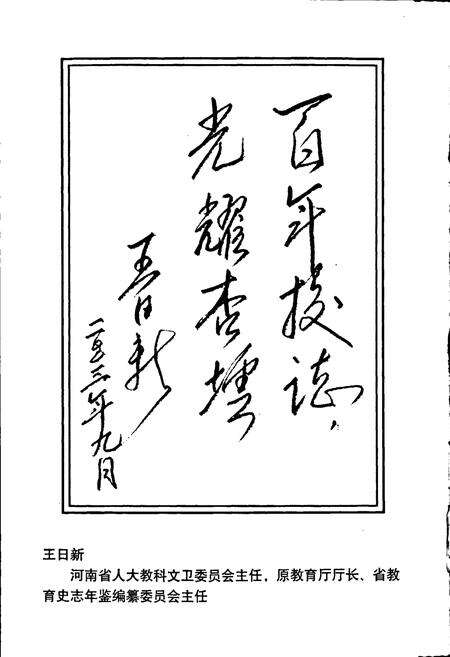 百年校誌，
光耀杏壇
王日新
二〇〇三年九月
王日新
河南省人大教科文卫委员会主任，原教育厅厅长、省教
育史志年鉴编纂委员会主任